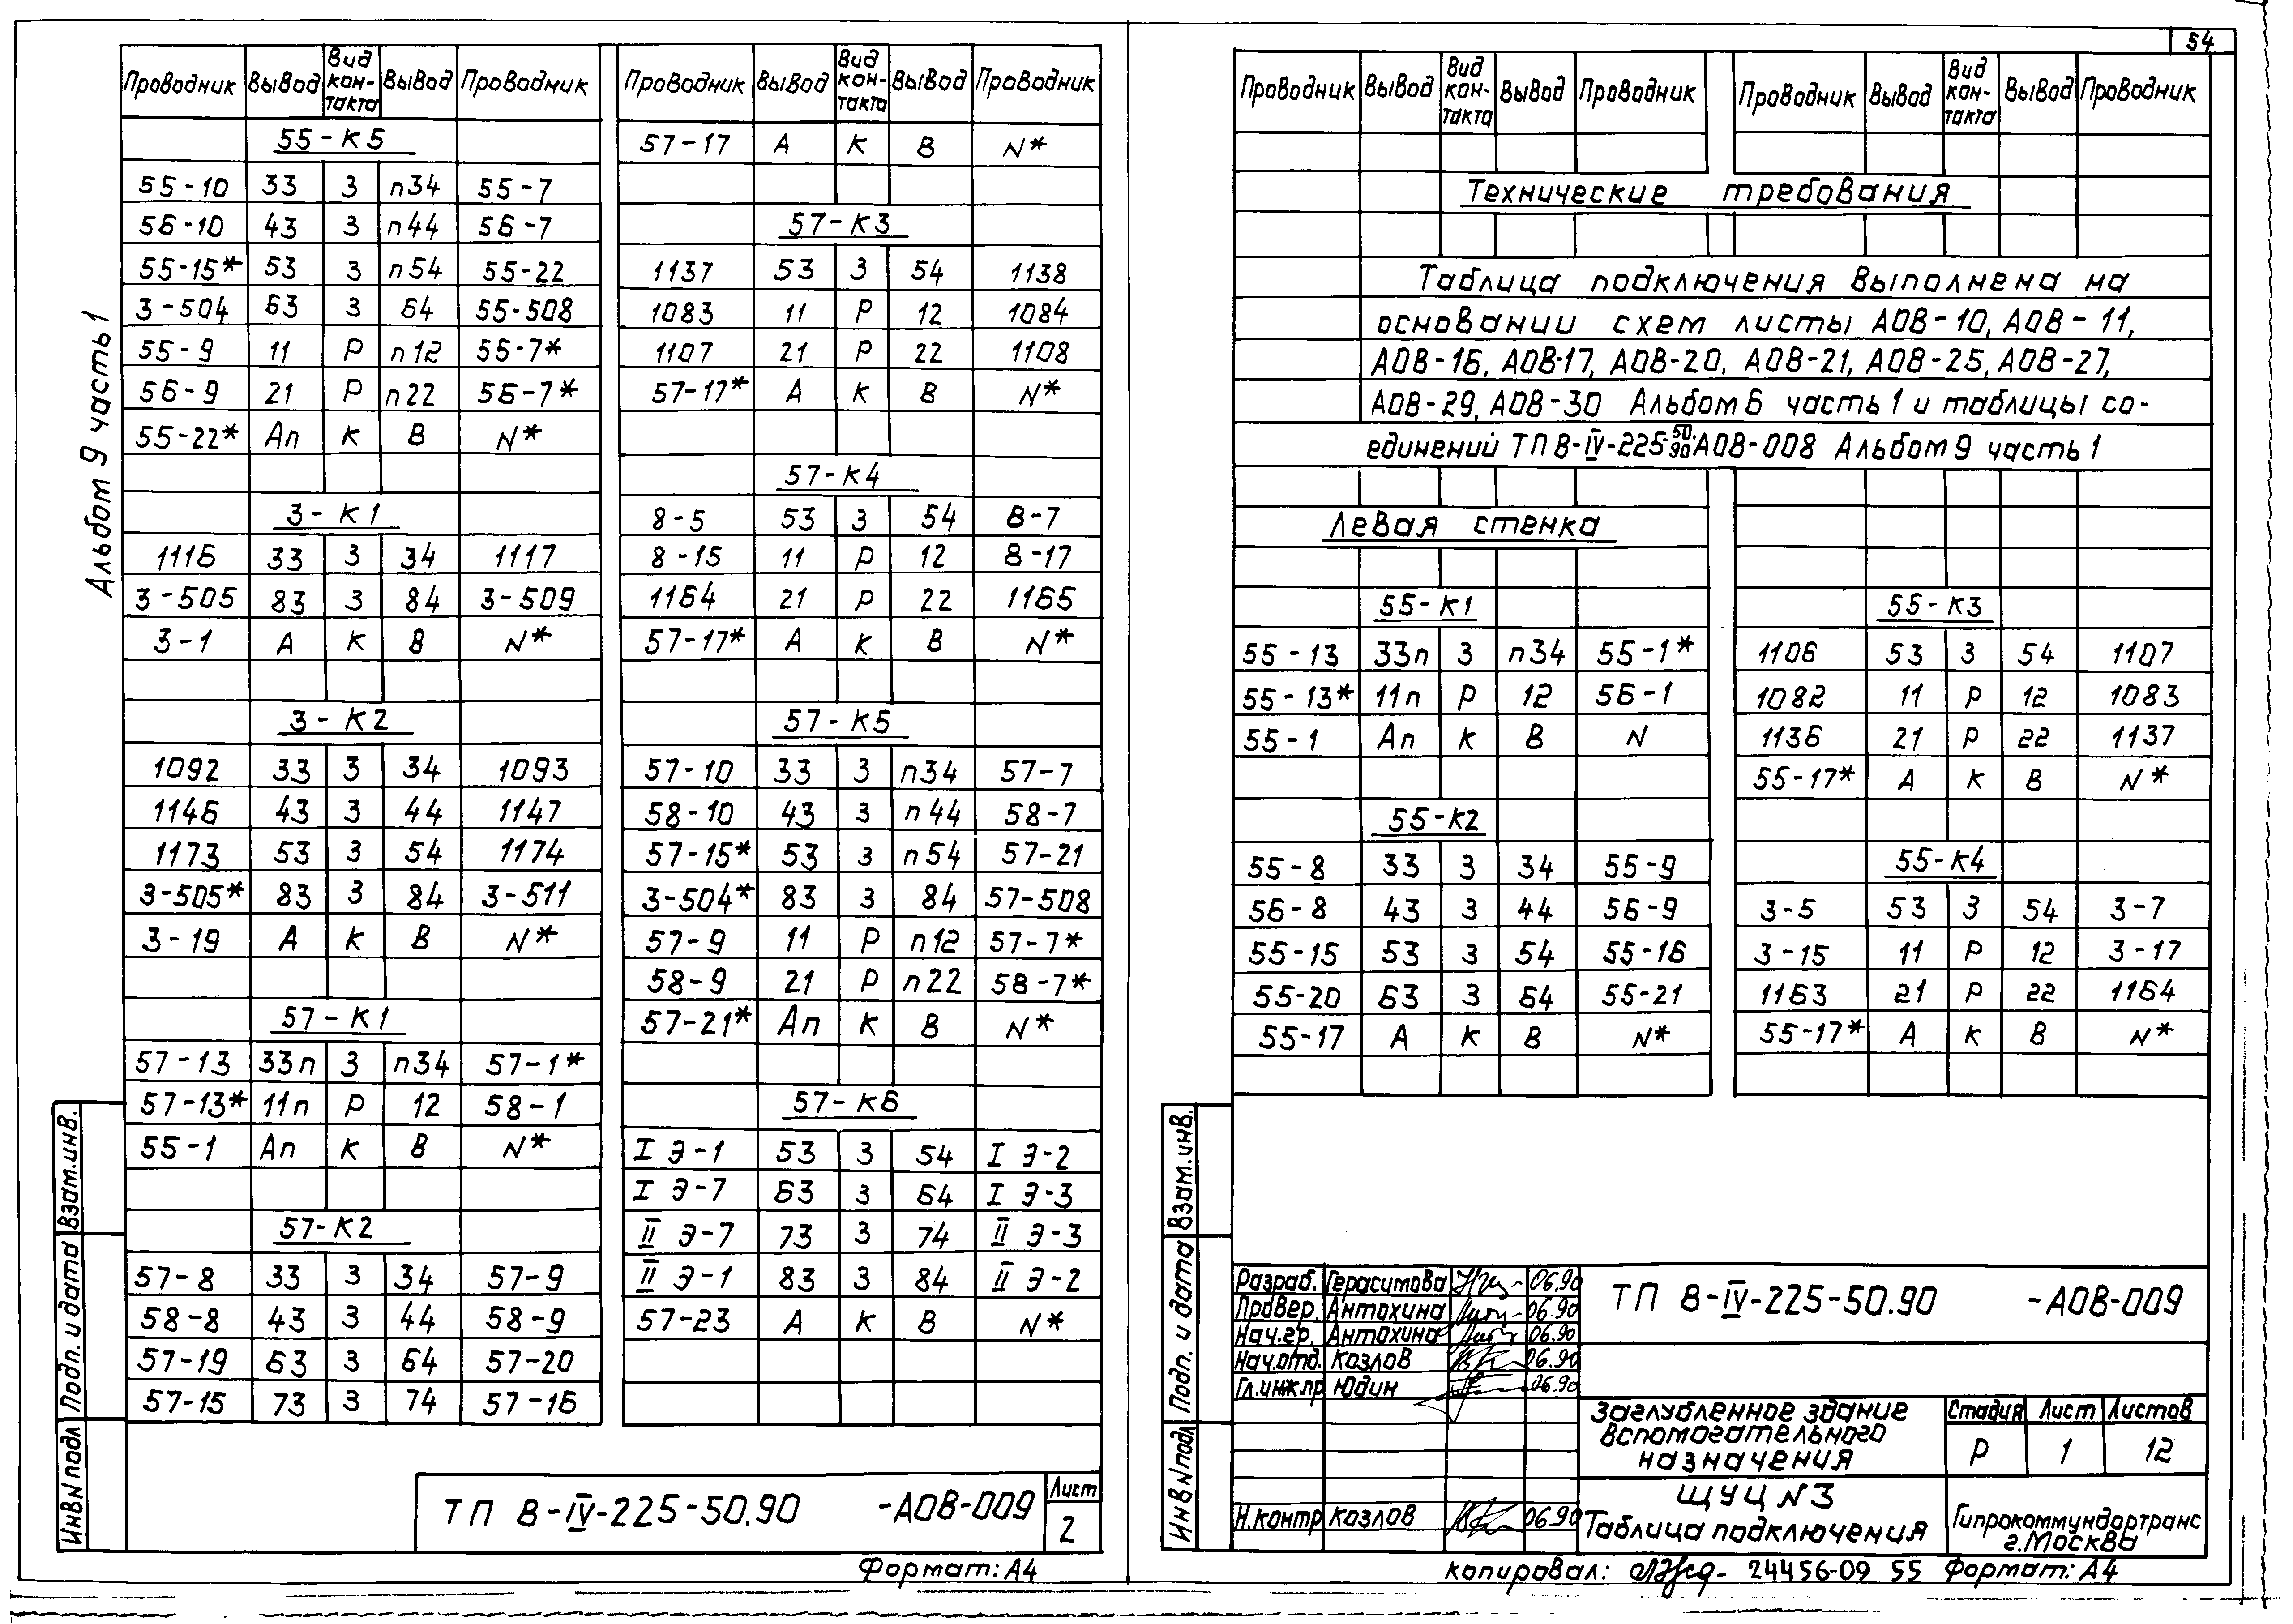 Альбом 9 часть 1
Проводник Вывод Вид кон-такта Вывод Проводник
55-К5
55-10 33 З п34 55-7
56-10 43 З п44 56-7
55-15* 53 З п54 55-22
3-504 63 З 64 55-508
55-9 11 Р п12 55-7*
56-9 21 Р п22 56-7*
55-22* Ап К В N*
3-К1
1116 33 З 34 1117
3-505 83 З 84 3-509
3-1 А К В N*
3-К2
1092 33 З 34 1093
1146 43 З 44 1147
1173 53 З 54 1174
3-505* 83 З 84 3-511
3-19 А К В N*
57-К1
57-13 33п З п34 57-1*
57-13* 11п Р 12 58-1
55-1 Ап К В N*
57-К2
57-8 33 З 34 57-9
58-8 43 З 44 58-9
57-19 63 З 64 57-20
57-15 73 З 74 57-16
Проводник Вывод Вид кон-такта Вывод Проводник
57-17 А К В N*
57-К3
1137 53 З 54 1138
1083 11 Р 12 1084
1107 21 Р 22 1108
57-17* А К В N*
57-К4
8-5 53 З 54 8-7
8-15 11 Р 12 8-17
1164 21 Р 22 1165
57-17* А К В N*
57-К5
57-10 33 З п34 57-7
58-10 43 З п44 58-7
57-15* 53 З п54 57-21
3-504* 83 З 84 57-508
57-9 11 Р п12 57-7*
58-9 21 Р п22 58-7*
57-21* Ап К В N*
57-К6
I Э-1 53 З 54 I Э-2
I Э-7 63 З 64 I Э-3
II Э-7 73 З 74 II Э-3
II Э-1 83 З 84 II Э-2
57-23 А К В N*
Взам.инв.
Подп. и дата
Инв N подл
ТП 8-IV-225-50.90 -АОВ-009
Лист
2
Формат: А4
54
Проводник Вывод Вид кон-такта Вывод Проводник
Проводник Вывод Вид кон-такта Вывод Проводник
Технические требования
Таблица подключения выполнена на
основании схем листы АОВ-10, АОВ-11,
АОВ-16, АОВ-17, АОВ-20, АОВ-21, АОВ-25, АОВ-27,
АОВ-29, АОВ-30 Альбом 6 часть 1 и таблицы со-
единений ТП 8-IV-225-50.90 АОВ-008 Альбом 9 часть 1
Левая стенка
55-К1
55-13 33п З п34 55-1*
55-13* 11п Р 12 56-1
55-1 Ап К В N
55-К2
55-8 33 З 34 55-9
56-8 43 З 44 56-9
55-15 53 З 54 55-16
55-20 63 З 64 55-21
55-17 А К В N*
55-К3
1106 53 З 54 1107
1082 11 Р 12 1083
1136 21 Р 22 1137
55-17* А К В N*
55-К4
3-5 53 З 54 3-7
3-15 11 Р 12 3-17
1163 21 Р 22 1164
55-17* А К В N*
Взам.инв.
Подп. и дата
Инв N подл
Разраб. Герасимова 06.90
Провер. Антохина 06.90
Нач.гр. Антохина 06.90
Нач.отд. Козлов 06.90
Гл.инж.пр Юдин 06.90
Н.контр Козлов 06.90
ТП 8-IV-225-50.90 -АОВ-009
Заглубленное здание
вспомогательного
назначения
Стадия Лист Листов
Р 1 12
ЩУЦ N3
Таблица подключения
Гипрокоммундортранс
г.Москва
копировал: 24456-09 55 Формат: А4